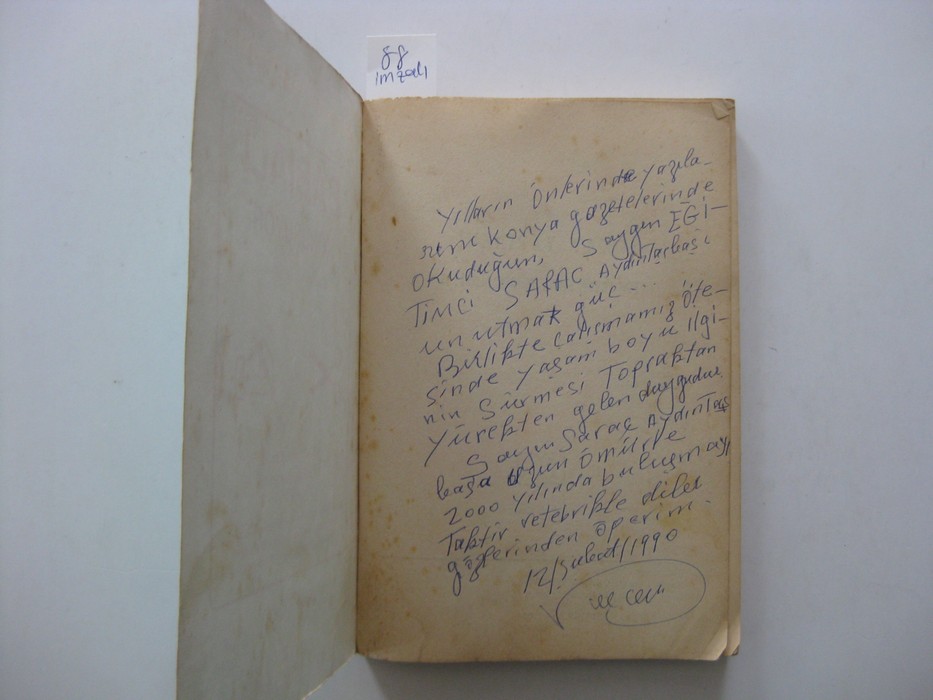 88
imzalı
Yılların Önlerinde yazıla-
Konya gazetelerinde
Okuduğun, Saygın EĞİ-
TİMCİ SARAÇ Aydıntaşbaşı
unutmak güç...
Birlikte çalışmamız öte-
sinde yaşam boyu ilgi-
nin sürmesi Topraktan
Yürekten gelen duygudur
Saygın Saraç Aydıntaş
başa uzun ömürle
2000 yılında buluşmayı
Taktir ve tebrikle diler
gözlerinden öperim.
12/Şubat/1990